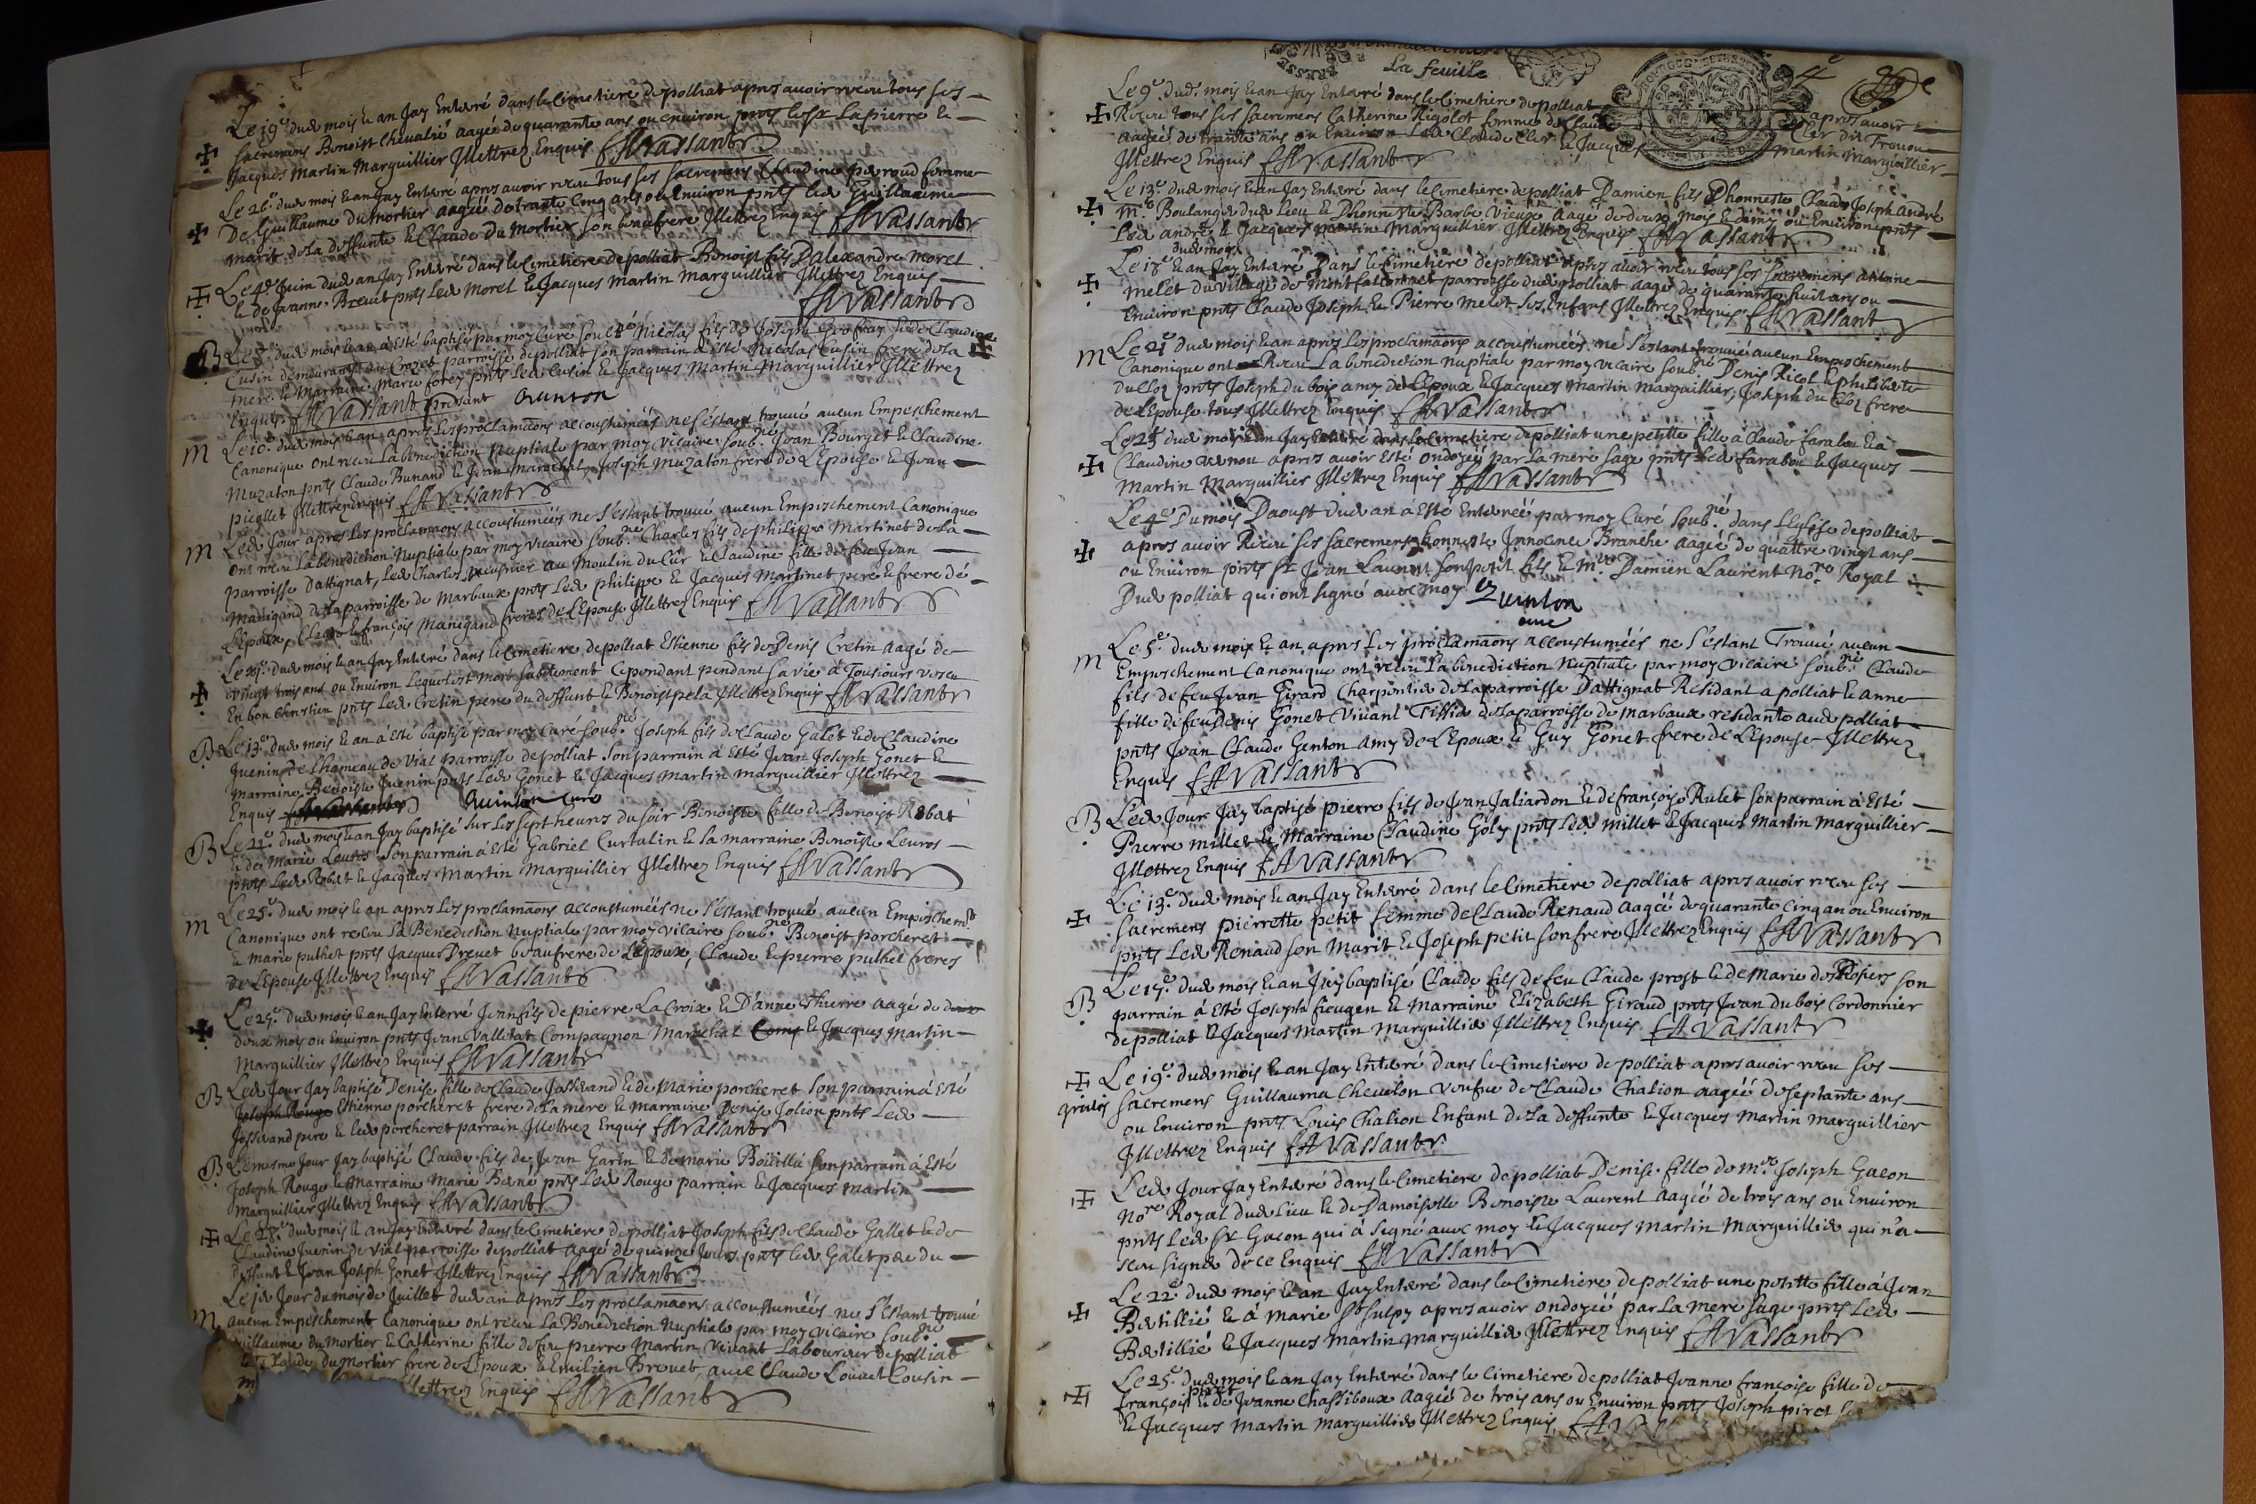 Le 19e dud mois & an Jay Enterré dans le Cimetiere de polliat apres avoir receu tous ses
sacremens Benoist Chevalié aagé de quarante ans ou environ pnts le sr Lapierre &
Jacques Martin Marguillier Illettrez Enquis f A Vassant
Le 26e dud mois & an Jay Enterré apres avoir receu tous ses sacremens Claudine peroud femme
De Guillaume du mortier aagéé de trante cinq ans ou Environ pnts led Guillaume
marit de la deffunte & Claude Du Mortier son beaufrere Illettrez Enquis f A Vassant
Le 4e Juin dud an Jay Enterré dans le Cimetiere de polliat Benoist fils D'alexandre Morel
& de Jeanne Brevet pnts led Morel & Jacques Martin Marguillier Illettrez Enquis
f A Vassant
B Le 8e dud mois & an à esté baptisé par moy Curé soubné Nicolas fils de Joseph & de Claudine
Cusin demeurants au Crozet parroisse de polliat son parrain à esté Nicolas Cusin frere de la
mere & Marraine Marie forey pnts led Cusin & Jacques Martin Marguillier Illettrez
Enquis f A Vassant present Quinson
M Le 10e dud mois & an apres les proclamaons accoustuméés ne s'éstant trouvé aucun Empeschement
Canonique ont receu La benediction Nuptiale par moy vicaire soubné Jean Bourget & Claudine
Muzaton pnts Claude Bunand & Jean Marechal, Joseph Muzaton frere de L'Epouse & Jean
picollet Illettrez Enquis f A Vassant
M Led Jour apres les proclamaons accoustuméés ne s'estant trouvé aucun Empeschement Canonique
ont receu La benediction Nuptiale par moy vicaire soubné Charles fils de philippe Martinet de la
parroisse Dattignat, Led Charles meusnier au Moulin du Cur & Claudine fille de feu Jean
Manigand de la parroisse de Marbaux pnts Led philippe & Jacques Martinet pere & frere de
L'Epoux, & françois Manigand freres de L'Epouse Illettrez Enquis f A Vassant
dud mois & an Jay Enterré dans le Cimetiere de polliat Estienne fils de Denis Cretin aagé de
vingt trois ans ou Environ Lequel est mort subitement Cependant pendant sa vie à Tousiours vescu
En bon Chrestien pnts Led Cretin pere du deffunt & Benoist pela Illettrez Enquis f A Vassant
B Le 13e dud mois & an à esté baptisé par moy Curé soubné Joseph fils de Claude Galet & de Claudine
Juenin de L'hameau de Vial parroisse de polliat Son parrain à Esté Jean Joseph Gonet &
Marraine Benoiste Juenin pnts Led Gonet & Jacques Martin Marguillier Illettrez
Enquis Quinson curé
B Le 22e dud mois & an Jay baptisé sur les sept heures du soir Benoiste fille de Benoist Robat
& de Marie Leuros Son parrain à Esté Gabriel Curtalin & la marraine Benoiste Leuros
pnts Led Robat & Jacques Martin Marguillier Illettrez Enquis f A Vassant
M Le 25e dud mois & an apres les proclamaons accoustuméés ne s'estant trouvé aucun Empischemt
Canonique ont receu La Benediction Nuptiale par moy vicaire soubné Benoist porcheret
& Marie puthet pnts Jacques Drevet beaufrere de L'époux, Claude & pierre puthet freres
De L'Epouse Illettrez Enquis f A Vassant
Le 25e dud mois & an Jay Enterré Jean fils de pierre La Croix & D'anne thierre aagé de
deux Mois ou Environ pnts Jean Valletat Compagnon Marechal & Jacques Martin
Marguillier Illettrez Enquis f A Vassant
B Led Jour Jay baptisé Denise fille de Claude Josserand & de Marie porcheret Son parrain à Esté
Joseph Rouge Estienne porcheret frere de la mere & Marraine Denise Jolion pnts Led
Josserand pere & led porcheret parrain Illettrez Enquis f A Vassant
B Le mesme Jour Jay baptisé Claude fils de Jean Garin & de Marie Bouillié Son parrain à Esté
Joseph Rouge & Marraine Marie Bené pnts Led Rouge parrain & Jacques Martin
Marguillier Illettrez Enquis f A Vassant
Le 28e dud mois & an Jay Enterré dans le Cimetiere de polliat Joseph fils de Claude Gallet & de
Claudine Juenin de Vial parroisse de polliat aagé de quinze Jours pnts led Galet pere du
deffunt & Jean Joseph Gonet Illettrez Enquis f A Vassant
M Le Jour du mois de Juillet dud an apres Les proclamaons accoustuméés ne s'estant trouvé
aucun Empeschement Canonique ont receu La Benediction Nuptiale par moy vicaire soubné
uillaume du Mortier & Catherine fille de feu pierre Martin vivant Laboureur de polliat
Claude du Mortier frere de L'Epoux & Emilien Brevet avec Claude Louvet Cousin
Illettrez Enquis f A Vassant
La feuille
4e
Le 9e dud mois & an Jay Enterré dans le Cimetiere de polliat apres avoir
Receu tous ses sacremens Catherine Rigolet femme de Claude Cler dit Trouvu
aagéé de trante ans ou Environ Led Claude Cler & Jacques Martin Marguillier
Illettrez Enquis f A Vassant
Le 13e dud mois & an Jay Enterré dans le Cimetiere de polliat Damien fils D'honneste Claude Joseph André
Me Boulanger dud Lieu & D'honneste Barbe Vieux aagé de deux Mois & demy ou Environ pnts
Led andré & Jacques Martin Marguillier Illettrez Enquis f A Vassant
dud mois
Le 18e & an Jay Enterré Dans le Cimetiere de polliat apres avoir receu tous ses sacremens Antoine
Melet du village de Montfalconnet parroisse dud polliat aagé de quarante huit ans ou
Environ pnts Claude Joseph & Pierre Melet ses Enfans Illettrez Enquis f A Vassant
M Le 21e dud mois & an apres Les proclamaons accoustuméés ne s'estant trouvé aucun Empeschement
Canonique ont Receu La benediction nuptiale par moy vicaire soubné Denis Ricol & philiberte
du Cloz pnts Joseph du bois amy de L'Epoux & Jacques Martin Marguillier, Joseph du Cloz frere
de L'Epouse tous Illettrez Enquis f A Vassant
Le 25e dud mois & an Jay Enterré dans le Cimetiere de polliat une petitte fille à Claude farabou & à
Claudine venou apres avoir Esté ondoyéé par La mere sage pnts Led farabou & Jacques
Martin Marguillier Illettrez Enquis f A Vassant
Le 4e Du mois Daoust dud an à Esté Enterréé par moy Curé soubné dans L'Eglise de polliat
apres avoir Receu ses sacremens honneste Innocence Branche aagéé de quattre vingt ans
ou Environ pnts Sr Jean Laurent son petit fils & Mre Damien Laurent Nore Royal
Dud polliat qui ont signé avec moy Quinson
curé
M Le 5e dud mois & an apres Les proclamaons accoustuméés ne s'estant Trouvé aucun
Empeschement Canonique ont receu La benediction Nuptiale par moy vicaire soubné Claude
fils de feu Jean Girard Charpentier de La parroisse Dattignat Residant a polliat & anne
fille de feu Denis Gonet Vivant Tissier de La parroisse de Marbaux residante aud polliat
pnts Jean Claude Genton Amy de L'Epoux & Guy Gonet frere de L'Epouse Illettrez
Enquis f A Vassant
B Led Jour Jay baptisé pierre fils de Jean Jaliardon & de françoise Rulet son parrain à Esté
Pierre Millet & Marraine Claudine Goly pnts Led Millet & Jacques Martin Marguillier
Illettrez Enquis f A Vassant
Le 13e dud mois & an Jay Enterré dans le Cimetiere de polliat apres avoir receu ses
sacremens pierrette petit femme de Claude Renaud aagéé de quarante cinq an ou Environ
pnts Led Renaud son Marit & Joseph petit son frere Illettrez Enquis f A Vassant
B Le 15e dud mois & an Jay baptisé Claude fils de feu Claude prost & de Marie des Rosiers son
parrain à Esté Joseph fieugen & Marraine Elizabeth Giraud pnts Jean du bois Cordonnier
de polliat & Jacques Martin Marguillier Illettrez Enquis f A Vassant
Le 19e dud mois & an Jay Enterré dans le Cimetiere de polliat apres avoir receu ses
gratis sacremens Guillauma Chevelon veufve de Claude Chalion aagéé de septante ans
ou Environ pnts Louis Chalion Enfant de La deffunte & Jacques Martin Marguillier
Illettrez Enquis f A Vassant
Led Jour Jay Enterré dans le Cimetiere de polliat Denise fille de Mre Joseph Gacon
Nore Royal dud Lieu & de Damoiselle Benoiste Laurent aagéé de trois ans ou Environ
pnts Led Sr Gacon qui à signé avec moy & Jacques Martin Marguillier qui n'a
sceu signer de ce Enquis f A Vassant
Le 22e dud mois & an Jay Enterré dans le Cimetiere de polliat une petitte fille à Jean
Bretillié & à Marie St Sulpy apres avoir ondoyéé par La mere sage pnts Led
Bretillié & Jacques Martin Marguillier Illettrez Enquis f A Vassant
Le 25e dud mois & an Jay Enterré dans le Cimetiere de polliat Jeanne françoise fille de
françois piret & de Jeanne Chassiboux aagéé de trois ans ou Environ pnts Joseph piret
& Jacques Martin Marguillier Illettrez Enquis f A V